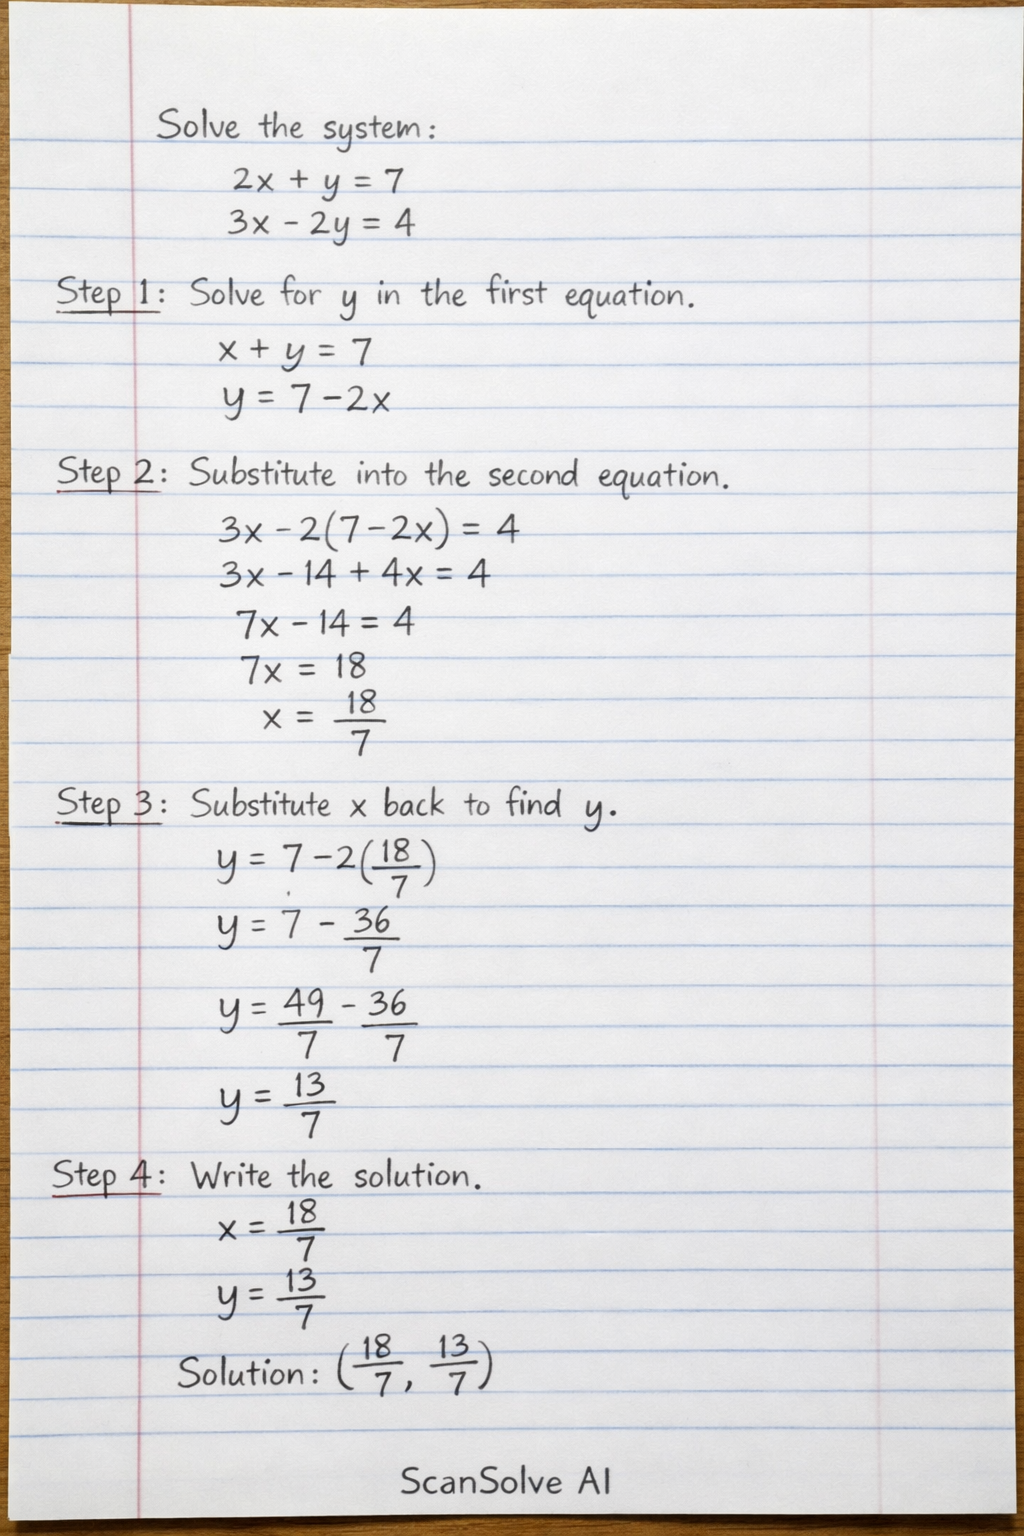 Solve the system:
2x + y = 7
3x - 2y = 4
Step 1: Solve for y in the first equation.
x + y = 7
y = 7 - 2x
Step 2: Substitute into the second equation.
3x - 2(7 - 2x) = 4
3x - 14 + 4x = 4
7x - 14 = 4
7x = 18
x = 18/7
Step 3: Substitute x back to find y.
y = 7 - 2(18/7)
y = 7 - 36/7
y = 49/7 - 36/7
y = 13/7
Step 4: Write the solution.
x = 18/7
y = 13/7
Solution: (18/7, 13/7)
ScanSolve AI